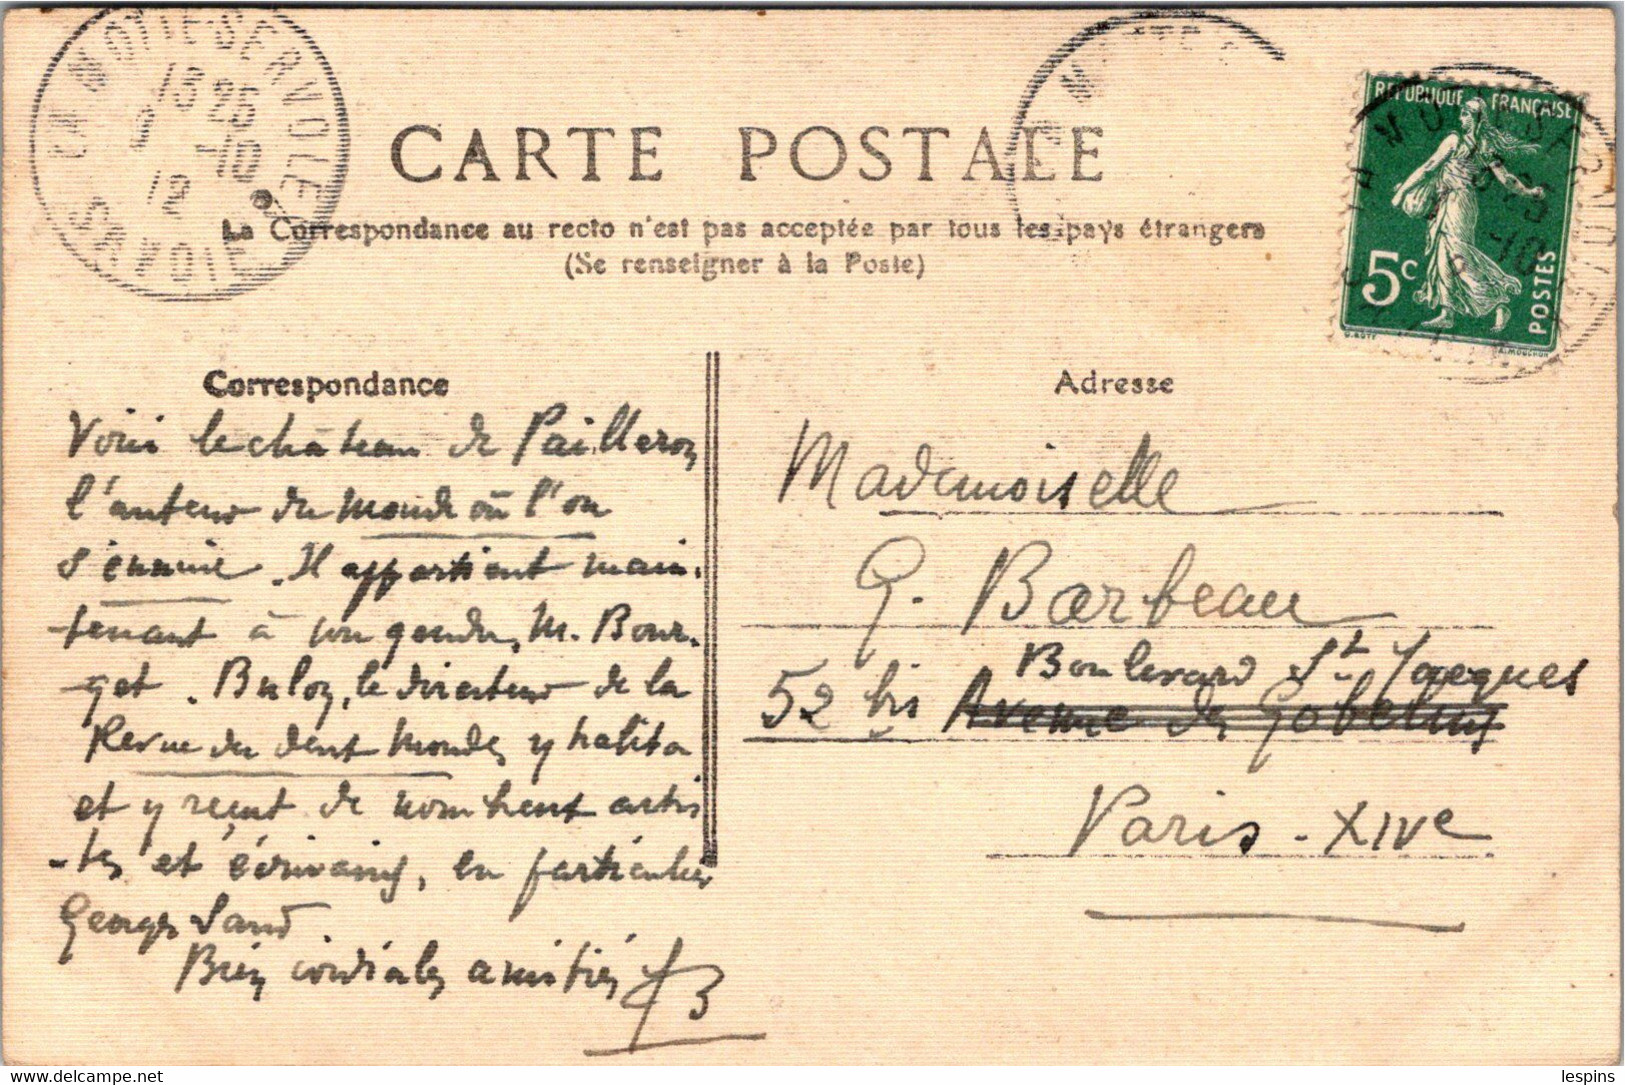 LA MOTTE-SERVOLEX
13 25
-10
12
SAVOIE
CARTE POSTALE
La Correspondance au recto n'est pas acceptée par tous les pays étrangers
(Se renseigner à la Poste)
REPUBLIQUE FRANÇAISE
5c
POSTES
O. ROTY
A. MOUCHON
Correspondance
Voici le château de Pailleron
l'auteur du Monde où l'on
s'ennuie. Il appartient main-
tenant à son gendre, M. Bour-
get. Buloz, le directeur de la
Revue des deux Mondes y habita
et y reçut de nombreux artis
-tes et écrivains, en particulier
George Sand.
Bien cordiales amitiés
Adresse
Mademoiselle
G. Barbeau
Boulevard St Jacques
52 bis Avenue des Gobelins
Paris - XIVe
lespins